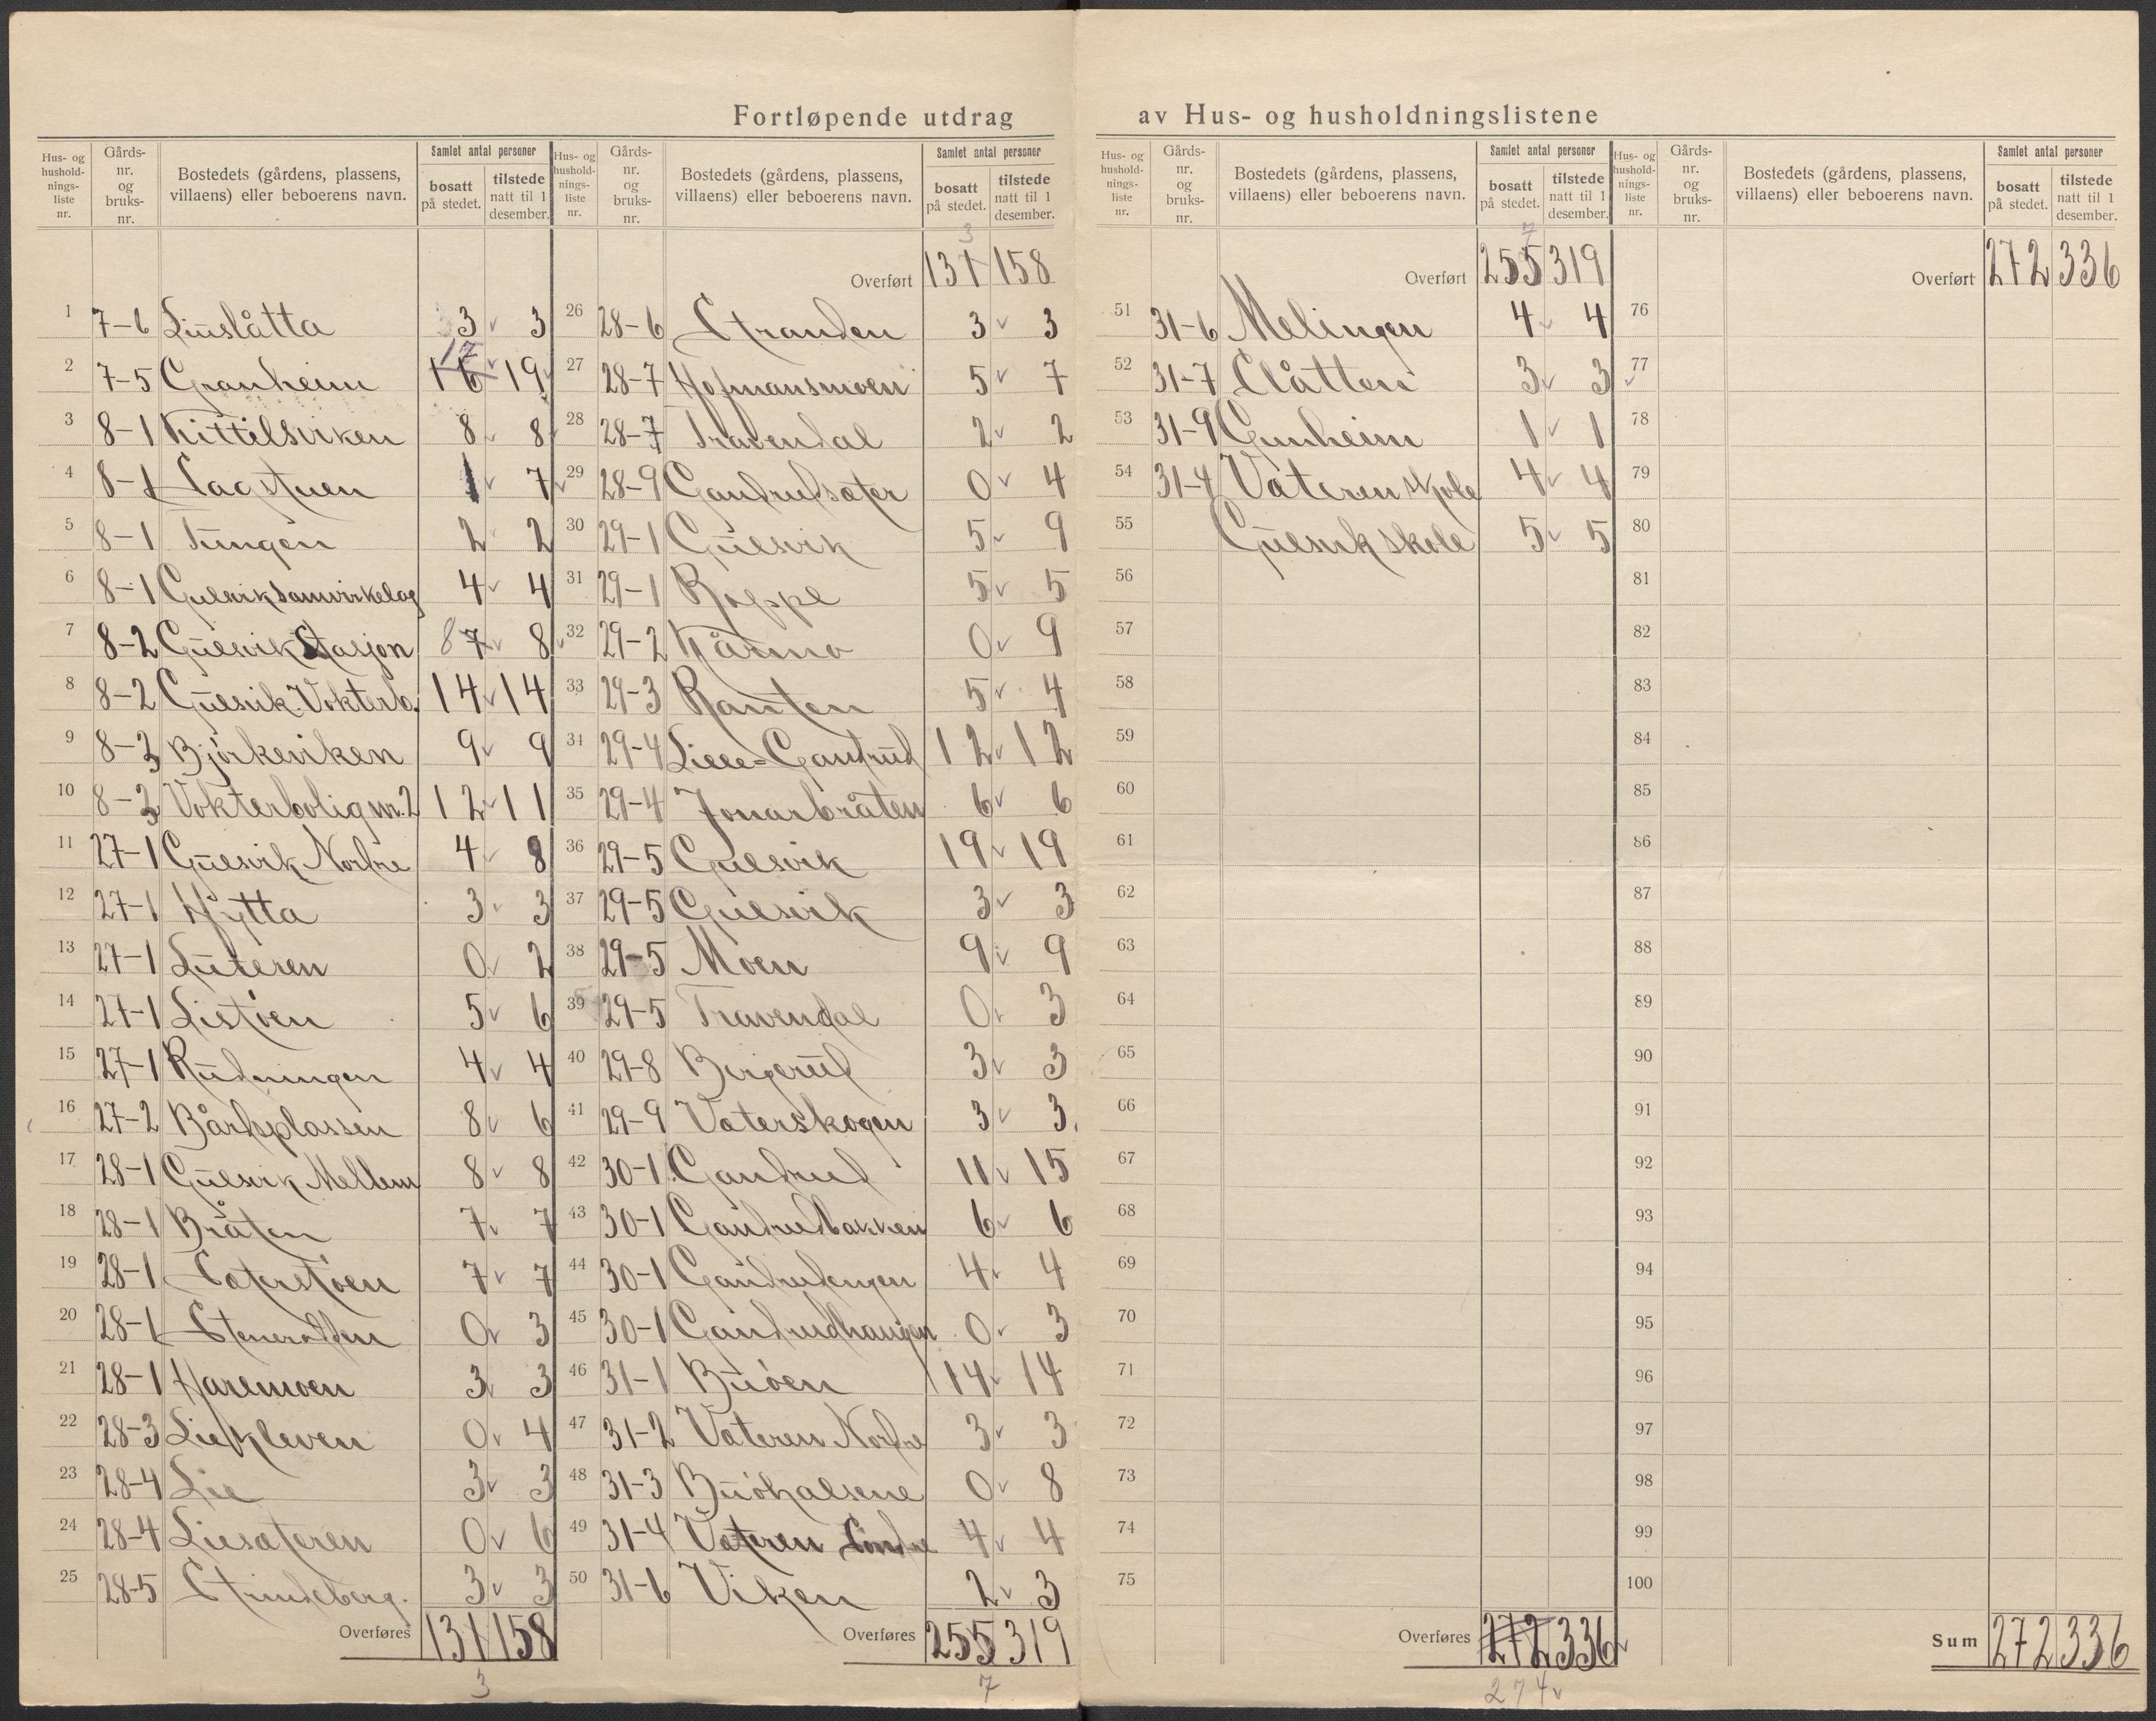 Fortløpende utdrag av Hus- og husholdningslistene
Hus- og husholdningsliste nr. | Gårds-nr. og bruks-nr. | Bostedets (gårdens, plassens, villaens) eller beboerens navn. | Samlet antal personer | bosatt på stedet. | tilstede natt til 1 desember.
1 7-6 Linslåtta 3 3
2 7-5 Granheim 16 17 19
3 8-1 Kittilsviken 8 8
4 8-1 Sagstuen 1 7
5 8-1 Tungen 2 2
6 8-1 Gulsvik Samvirkelag 4 4
7 8-2 Gulsvik Stasjon 8 7 8
8 8-2 Gulsvik Vokterb. 14 14
9 8-3 Bjørkeviken 9 9
10 8-3 Vokterbolig nr. 2 12 11
11 27-1 Gulsvik Nordre 4 8
12 27-1 Hytta 3 3
13 27-1 Luteren 0 2
14 27-1 Listøen 5 6
15 27-1 Rudningen 4 4
16 27-2 Bårdsplassen 8 6
17 28-1 Gulsvik Mellem 8 8
18 28-1 Bråten 7 7
19 28-1 Sæterstøen 7 7
20 28-1 0 3
21 28-1 Haremoen 3 3
22 28-3 Liekleven 0 4
23 28-4 Lie 3 3
24 28-4 Liesæteren 0 6
25 28-5 Strindeberg. 3 3
Overføres 131 158
3
Hus- og husholdningsliste nr. | Gårds-nr. og bruks-nr. | Bostedets (gårdens, plassens, villaens) eller beboerens navn. | Samlet antal personer | bosatt på stedet. | tilstede natt til 1 desember.
3
Overført 131 158
26 28-6 Stranden 3 3
27 28-7 Hofmansmoen 5 7
28 28-7 Travendal 2 2
29 28-9 Gandrudsæter 0 4
30 29-1 Gulsvik 5 9
31 29-1 Roppe 5 5
32 29-2 Kårmo 0 9
33 29-3 Ranten 5 4
34 29-4 Lille-Gandrud 12 12
35 29-4 Jonarbråten 6 6
36 29-5 Gulsvik 19 19
37 29-5 Gulsvik 3 3
38 29-5 Moen 9 9
39 29-5 Travendal 0 3
40 29-8 Birgerud 3 3
41 29-9 Vaterskogen 3 3
42 30-1 Gandrud 11 15
43 30-1 Gandrudbakken 6 6
44 30-1 Gandrudengen 4 4
45 30-1 Gandrudhaugen 0 3
46 31-1 Buøen 14 14
47 31-2 Vateren Nordre 3 3
48 31-3 Buøhalsene 0 8
49 31-4 Vateren Søndre 4 4
50 31-6 Viken 2 3
Overføres 255 319
7
Hus- og husholdningsliste nr. | Gårds-nr. og bruks-nr. | Bostedets (gårdens, plassens, villaens) eller beboerens navn. | Samlet antal personer | bosatt på stedet. | tilstede natt til 1 desember.
7
Overført 255 319
51 31-6 Melingen 4 4
52 31-7 Slåtten 3 3
53 31-9 Gunheim 1 1
54 31-4 Vateren skole 4 4
55 Gulsvik skole 5 5
56
57
58
59
60
61
62
63
64
65
66
67
68
69
70
71
72
73
74
75
Overføres 272 336
274
Hus- og husholdningsliste nr. | Gårds-nr. og bruks-nr. | Bostedets (gårdens, plassens, villaens) eller beboerens navn. | Samlet antal personer | bosatt på stedet. | tilstede natt til 1 desember.
Overført 272 336
76
77
78
79
80
81
82
83
84
85
86
87
88
89
90
91
92
93
94
95
96
97
98
99
100
Sum 272 336